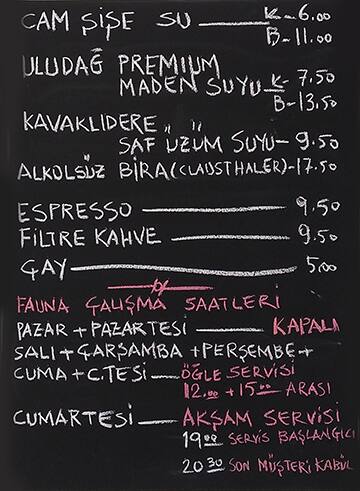 CAM ŞİŞE SU — K-6.00
B-11.00
ULUDAĞ PREMIUM
MADEN SUYU — K-7.50
B-13.50
KAVAKLIDERE
SAF ÜZÜM SUYU- 9.50
ALKOLSÜZ BİRA (CLAUSTHALER)-17.50
ESPRESSO — 9.50
FİLTRE KAHVE — 9.50
ÇAY — 5.00
FAUNA ÇALIŞMA SAATLERİ
PAZAR + PAZARTESİ — KAPALI
SALI + ÇARŞAMBA + PERŞEMBE +
CUMA + C.TESİ — ÖĞLE SERVİSİ
12.00 + 15.00 ARASI
CUMARTESİ — AKŞAM SERVİSİ
19.00 SERVİS BAŞLANGICI
20.30 SON MÜŞTERİ KABÜL